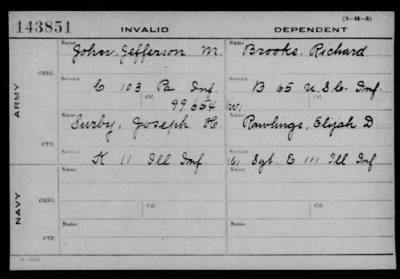 (3-H-3)
143851 INVALID DEPENDENT
Name Name
John, Jefferson M. Brooks, Richard
ORIG. Service Service
C 103 Pa Inf. B 65 U.S.C. Inf.
Ctf. Ctf.
99654 W.
ARMY
Name Name
Surby, Joseph H Rawlings, Elijah D
CTF. Service Service
K 11 Ill Inf Sgt. E 111 Ill Inf
NAVY
Name Name
ORIG.
Ctf. Ctf.
Name Name
CTF.